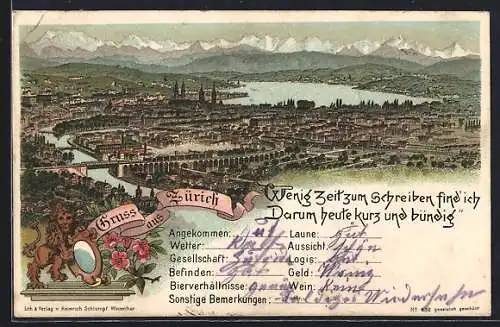 Gruss aus Zürich
"Wenig Zeit zum Schreiben find' ich
Darum heute kurz und bündig"
Angekommen: gut Laune: gut
Wetter: Aussicht: schön
Gesellschaft: Logis: gut
Befinden: Gut Geld: Wenig
Bierverhältnisse: Wein: Keine
Sonstige Bemerkungen: Baldiges Wiedersehn
Lith. & Verlag v. Heinrich Schlumpf, Winterthur
gesetzlich geschützt